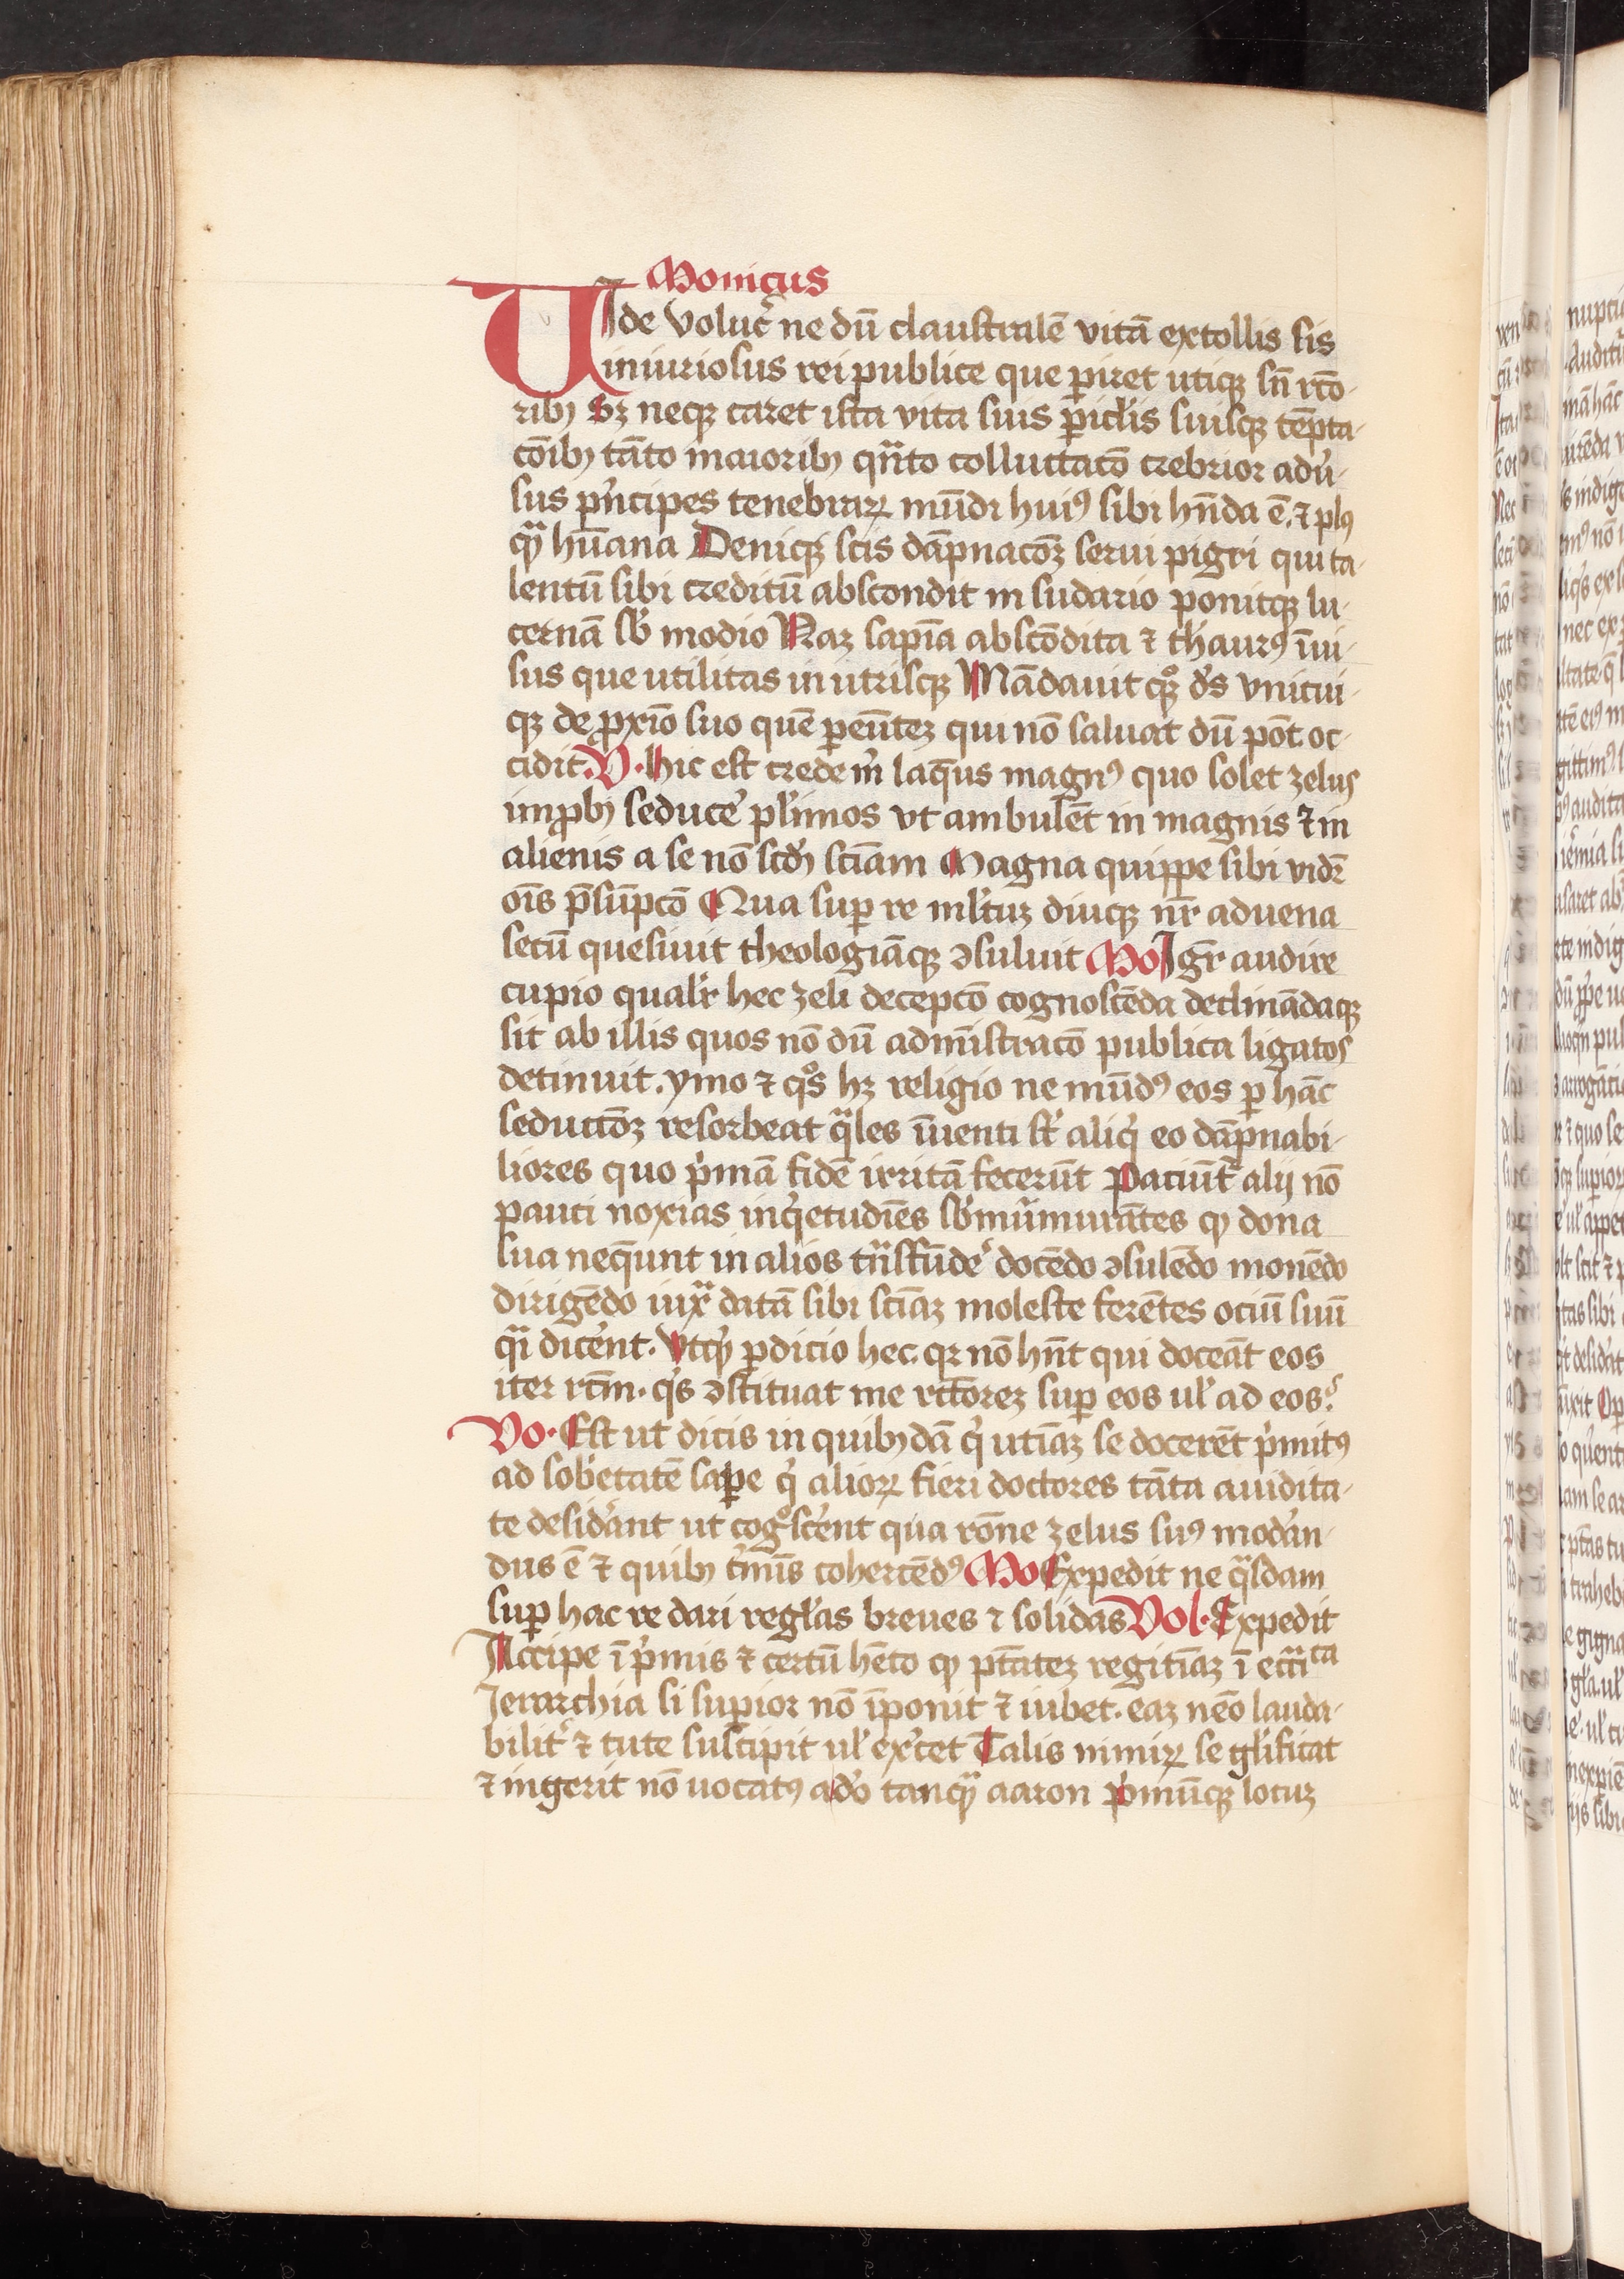 Monicus
UIde Voluc̉ ne dū claustralē vitā extollis sis
iniuriosus rei publice que ꝑiret utiqꝫ sn̄ rc̄o-
ribꝫ Sꝫ neqꝫ caret ista vita suis ꝑicl̉is suisqꝫ tēpta-
cōibꝫ tāto maioribꝫ qn̄to colluctacō crebrior adu̓-
sus pn̓cipes tenebraꝝ mūdi huiꝰ sibi hn̄da ē. ⁊ plꝰ
qͣꝫ hūana Denicqꝫ scis dāpnacōꝫ serui pigri qui ta-
lentū sibi creditū abscondit in sudario ponitqꝫ lu-
cernā sb̓ modio Naꝫ sapīa abscōdita ⁊ th̓aurꝰ īui-
sus que utilitas in utrisqꝫ Mādauit qꝫͦ ds̄ vnicui-
qꝫ de ꝓxīo suo quē ꝑeūteꝫ qui nō saluat dū pōt oc-
cidit. V. hic est crede m̓ laq̄us magnꝰ quo solet zelus
imꝓbꝫ seduce̓ pl̓imos vt ambulēt in magnis ⁊ in
alienis a se nō scd̓ꝫ scīam Magna quippe sibi vidr̄
oīs p̄sūpcō Qua suꝑ re ml̓tuꝫ diuqꝫ nr̄ aduena
secū quesiuit theologiāqꝫ ɔsuluit Mo Igr̄ audire
cupio qualr̓ hec zeli decepcō cognoscēda declinādaqꝫ
sit ab illis quos nō dū admīstracō publica ligatos
detinuit. ymo ⁊ qͦs hꝫ religio ne mūdꝰ eos ꝑ hāc
seductōꝫ resorbeat qͣles īuenti st̄ aliq̓ eo dāpnabi-
liores quo p̓mā fidē irritā fecerūt Paciūt᷑ alij nō
pauci noxias inq̓etudīes sb̓mūmurātes qꝫ dona
sua neq̄unt in alios tn̄sfūde̓ docēdo ɔsulēdo monēdo
dirigēdo iuxͣ datā sibi scīaꝫ moleste ferētes ociū suū
qͣi dice̓nt. Vtqꝫ ꝑdicio hec. qꝛ nō hn̄t qui doceāt eos
iter rc̄m. qͥs ɔstituat me rectoreꝫ suꝑ eos ul̓ ad eos.ͦ
Vo. Est ut dicis in quibꝫdā q̓ utīaꝫ se docerēt p̓mitꝰ
ad sob̓etatē saꝑe q̓ alioꝝ fieri doctores tāta auidita-
te desid̓ant ut cogͦsce̓nt qua rōne zelus suꝰ mod̓an-
dus ē ⁊ quibꝫ t̓mīs cohercēdꝰ Mo Expedit ne qͣsdam
suꝑ hac re dari regl̓as breues ⁊ solidas Vol. Expedit
Accipe ī p̓mis ⁊ certū hēto qꝫ ptāteꝫ regitīaꝫ ī eccͣica
Ierarchia si suꝑior nō īponit ⁊ iubet. eaꝫ nēo lauda-
bilit̓ ⁊ tute suscipit ul̓ exc̓et Talis nimiꝝ se gl̓ificat
⁊ ingerit nō uocatꝰ a do̓ tanqͣꝫ aaron p̓mūqꝫ locuꝫ